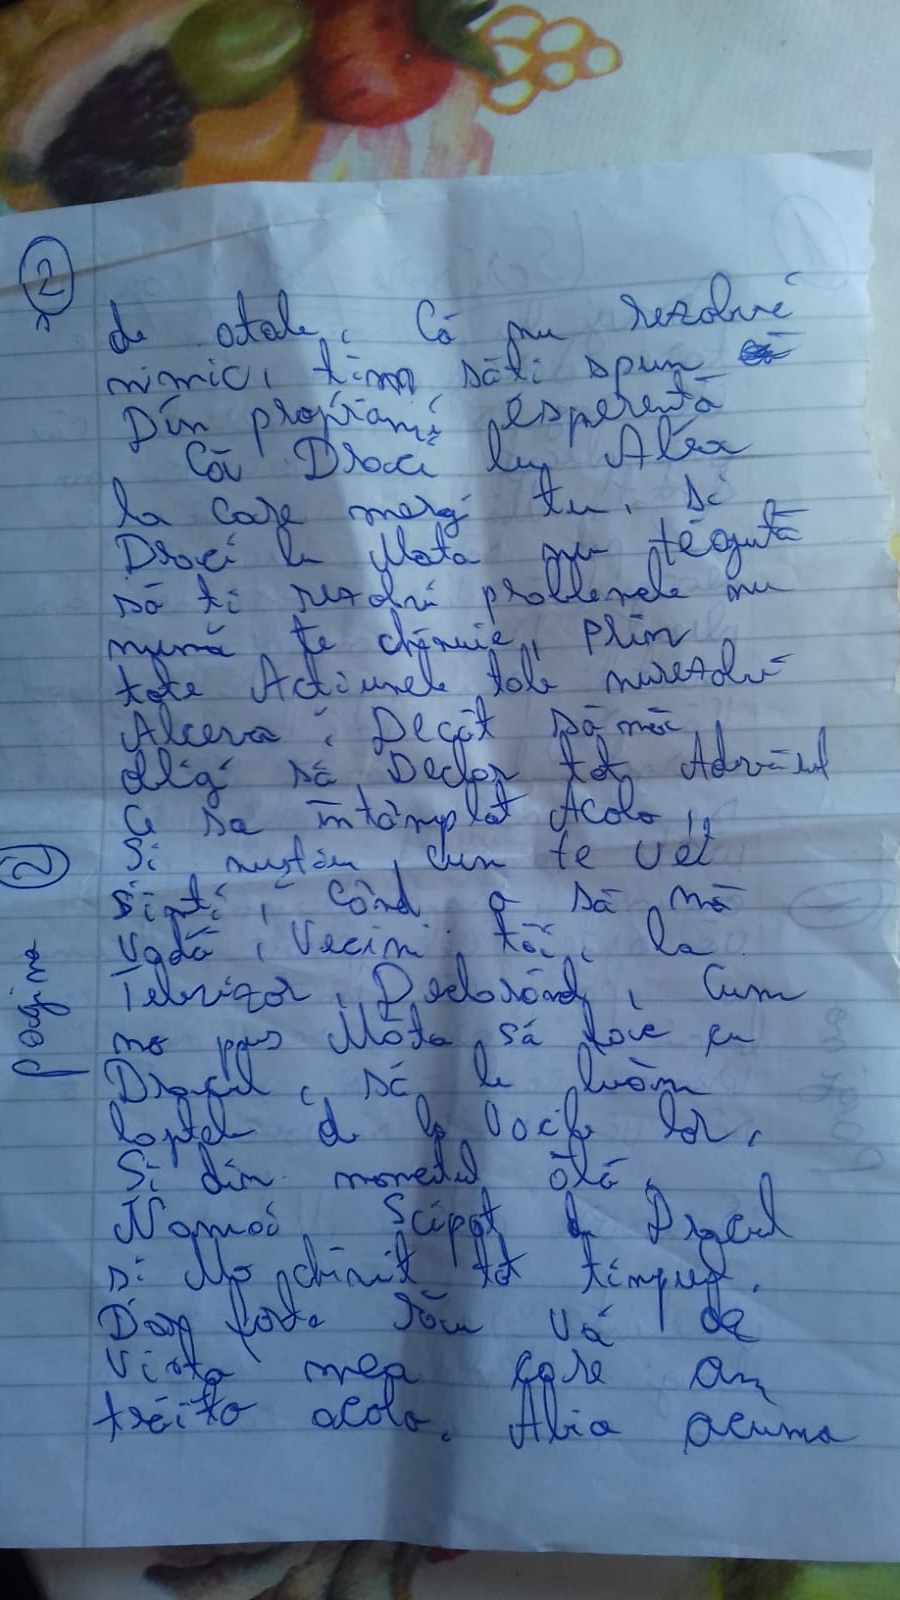 2
de otale, Că nu rezolvi
nimic, tin săti spun
Din propriami esperentă
Că Draci lu Alea
la care mergi tu, si
Draci lu Mata nu te agută
să ti rezolvi problemele nu
numă te chinuie, prin
tote Actiunele tale nurezolvi
Alceva, Decât să mă
oligi să Declar tot Adevărul
Ce sa întâmplat Acolo,,
Si nustiu, cum te vei
simti, Când o să mă
vadă, Vecini, tăi, la
Televizor, Declarând, Cum
ma pus Mata să fac cu
Dracul, să le luăm
laptele de la Vacile lor,
Si din momentul ăla,
Namai Scăpat de Dracul
si Ma chinuit tot timpul.
Dar forte rău vă de
Viata mea care am
trăito acolo. Abia acuma
pagina 2